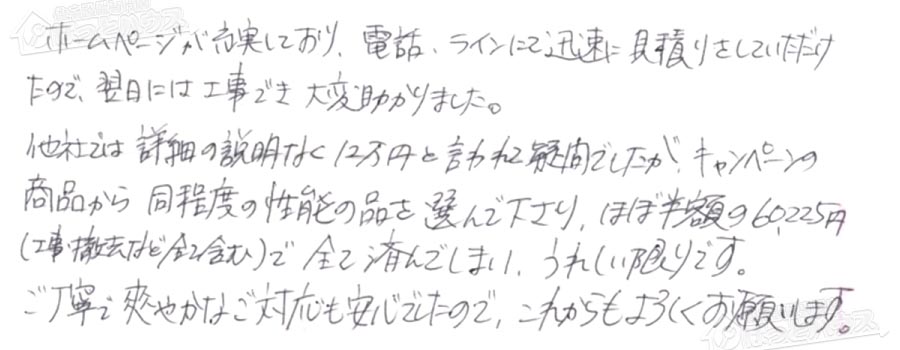 ホームページが充実しており、電話、ラインにて迅速に見積りをしていただけ
たので、翌日には工事でき大変助かりました。
他社では詳細の説明なく12万円と言われて疑問でしたが、キャンペーンの
商品から同程度の性能の品を選んで下さり、ほぼ半額の60,225円
(工事・撤去など全て含む)で全て済んでしまい、うれしい限りです。
ご丁寧で爽やかなご対応も安心でしたので、これからもよろしくお願いします。